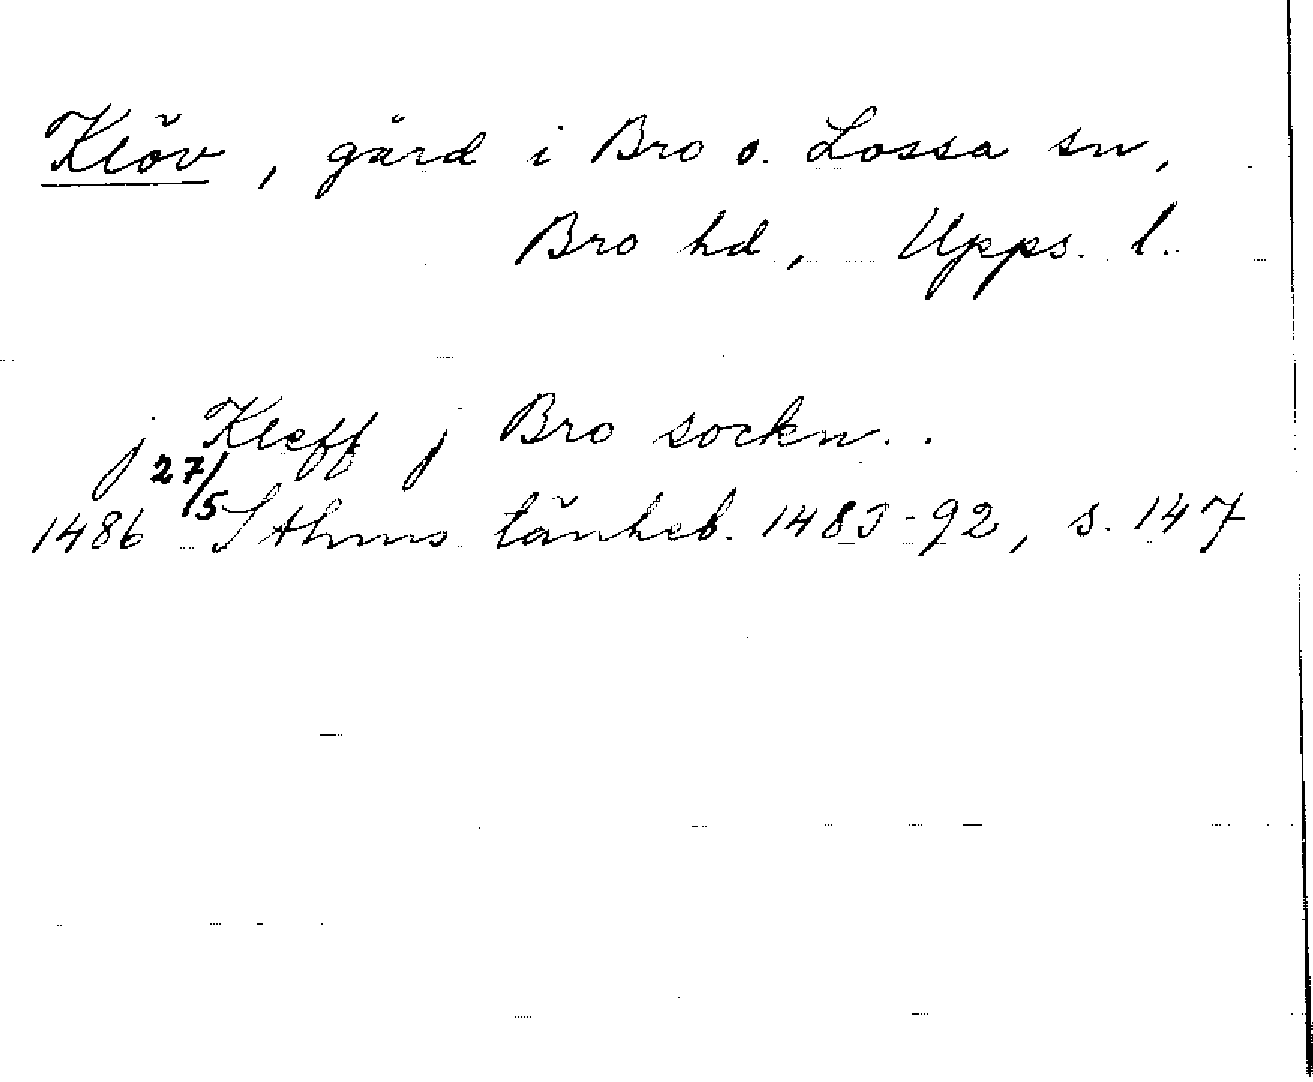 Klöv, gård i Bro o. Lossa sn,
Bro hd, Upps. l.
j Kleff j Bro sockn..
1486 27/5 Sthms tänkeb. 1483-92, s. 147